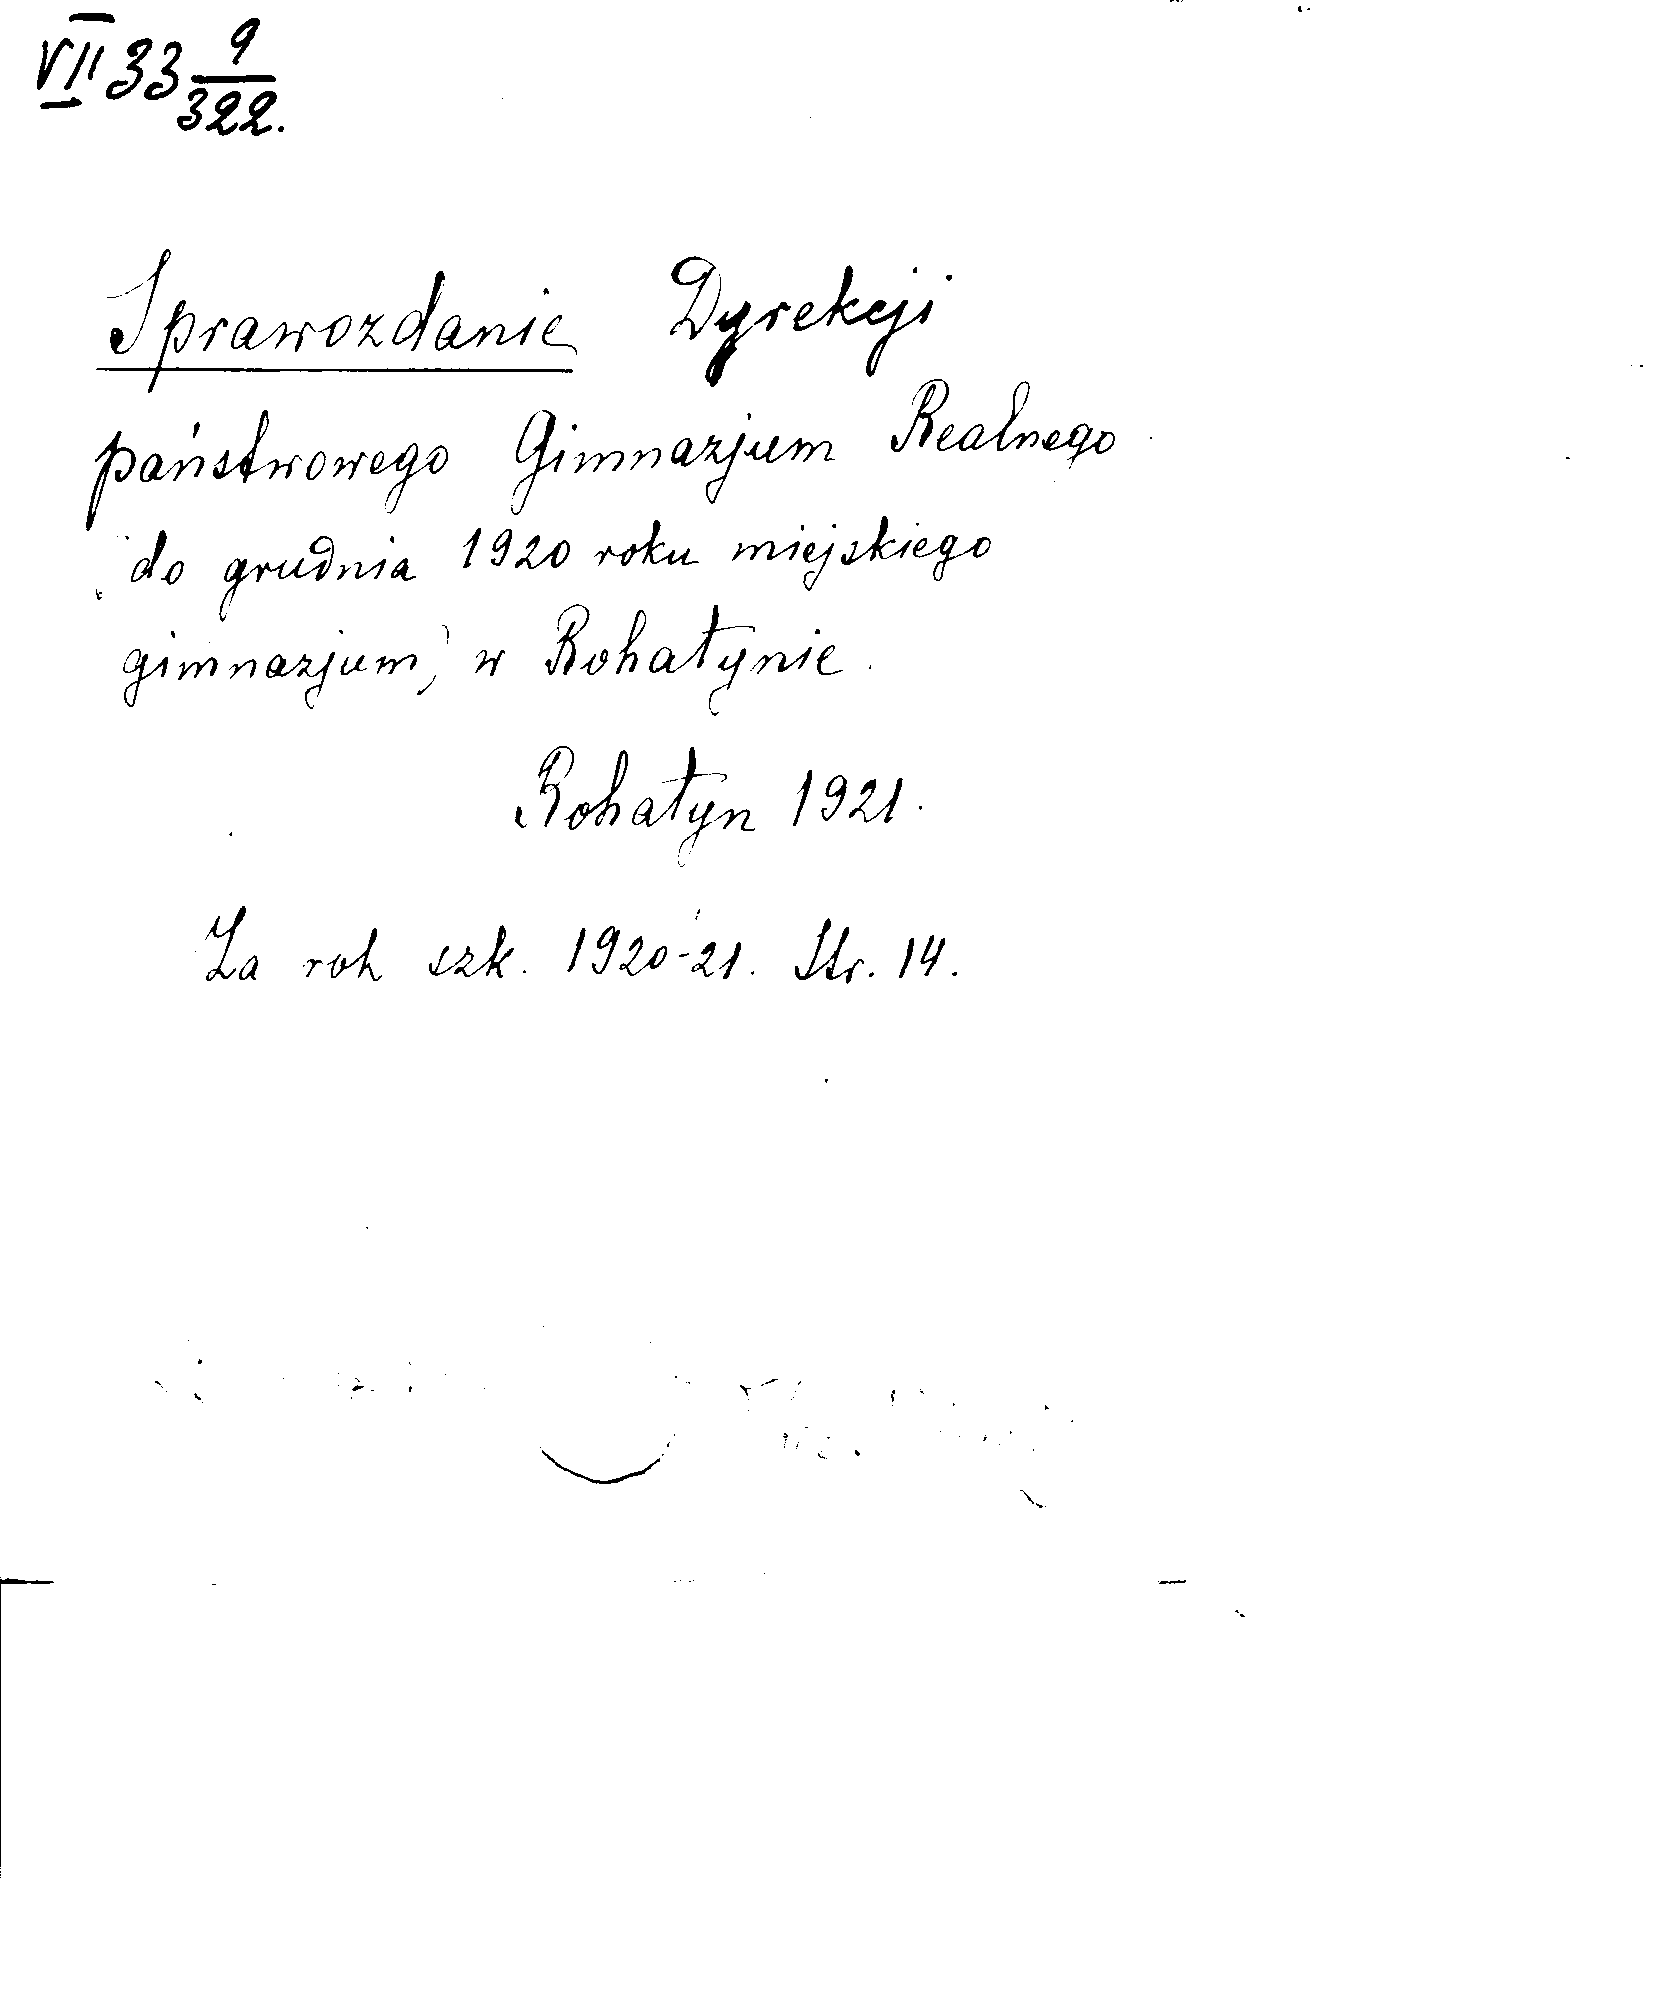 VII 33 9/322.
Sprawozdanie Dyrekcji
państwowego Gimnazjum Realnego
do grudnia 1920 roku miejskiego
gimnazjum) w Rohatynie.
Rohatyn 1921.
Za rok szk. 1920-21. Str. 14.